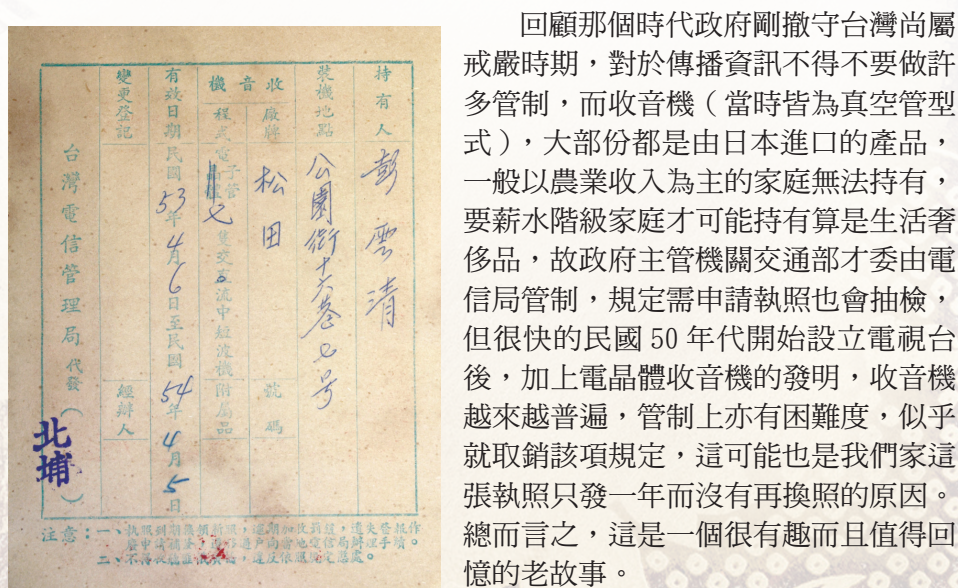 持有人
彭雲清
裝機地點
公園街十六巷七号
收音機
廠牌
松田
號碼
程式
電子管
七
附屬品
有效日期
民國53年4月6日至民國54年4月5日
變更登記
經辦人
台灣電信管理局代發(北埔)
注意:一、
二、
回顧那個時代政府剛撤守台灣尚屬
戒嚴時期,對於傳播資訊不得不要做許
多管制,而收音機(當時皆為真空管型
式),大部份都是由日本進口的產品,
一般以農業收入為主的家庭無法持有,
要薪水階級家庭才可能持有算是生活奢
侈品,故政府主管機關交通部才委由電
信局管制,規定需申請執照也會抽檢,
但很快的民國 50 年代開始設立電視台
後,加上電晶體收音機的發明,收音機
越來越普遍,管制上亦有困難度,似乎
就取銷該項規定,這可能也是我們家這
張執照只發一年而沒有再換照的原因。
總而言之,這是一個很有趣而且值得回
憶的老故事。